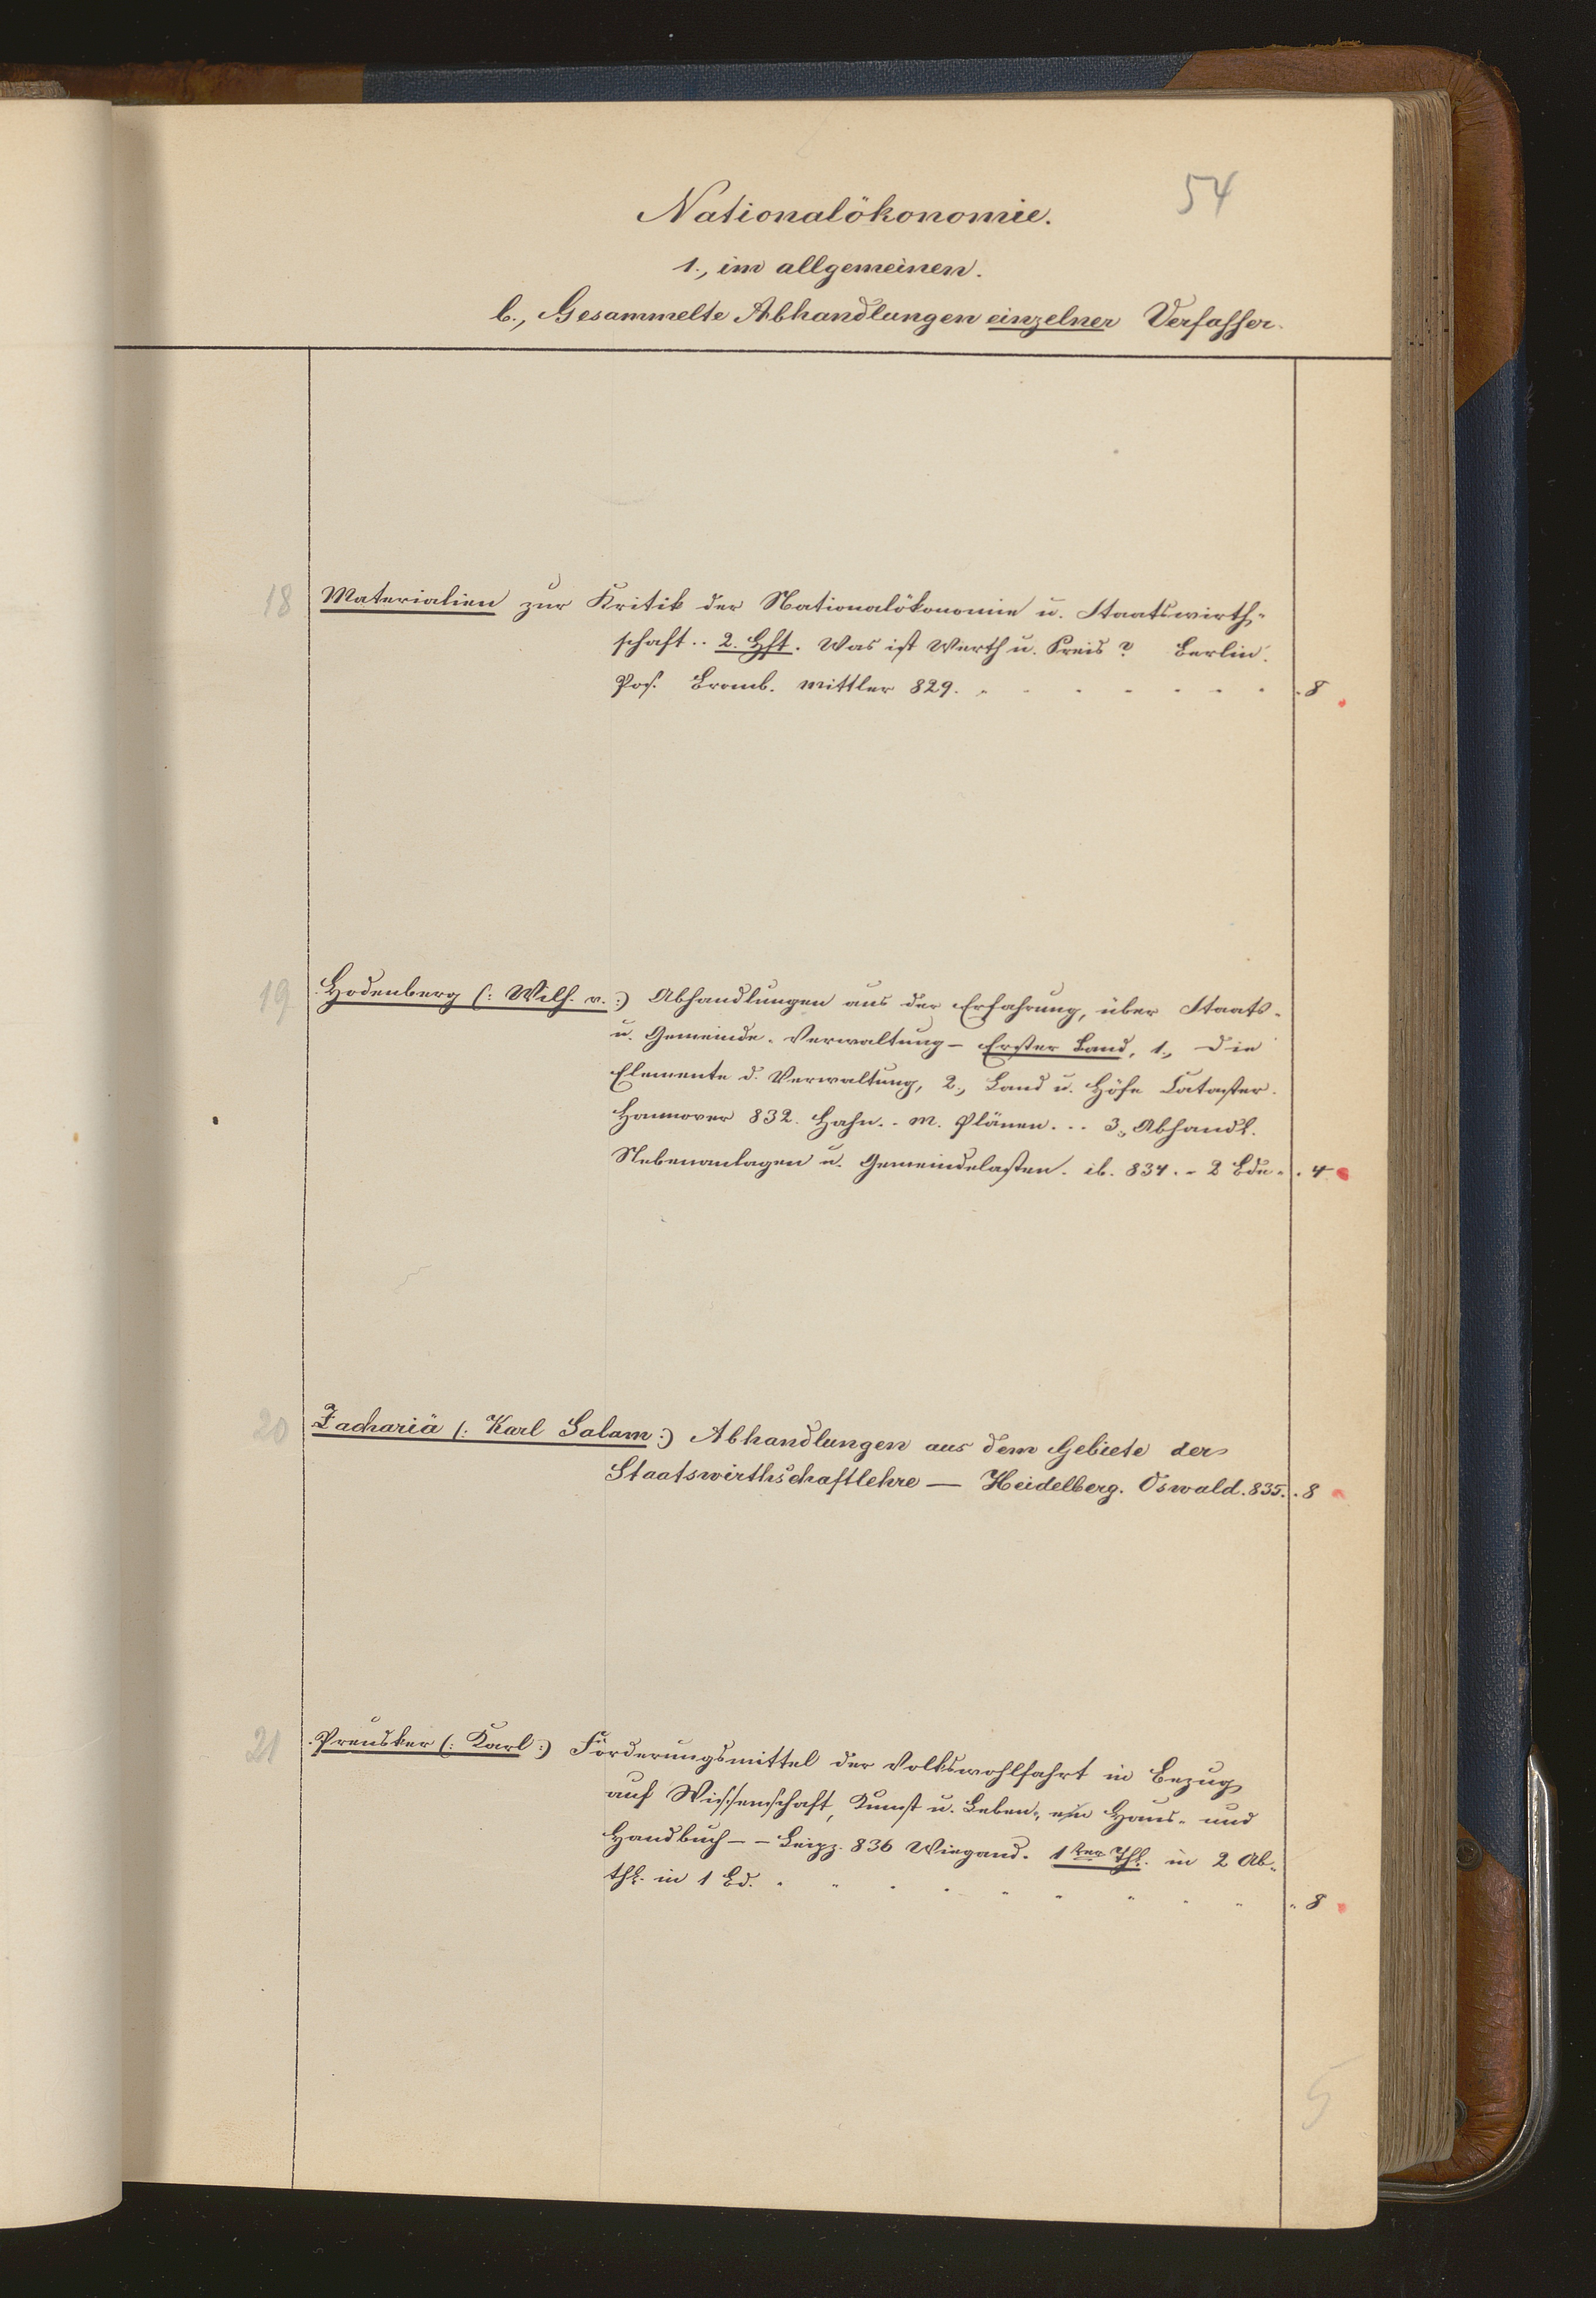 54
Nationalökonomie.
1., im allgemeinen.
b., Gesammelte Abhandlungen einzelner Verfasser.
18 Materialien zur Kritik der Nationalökonomie u. Staatswirth-
schaft.. 2. Hft. Was ist Werth u. Preis? Berlin.
Pos. Bromb. Mittler 829. . . . . . . . 8
19 Hodenberg (: Wilh. v. :) Abhandlungen aus der Erfahrung, über Staats-
u. Gemeinde-Verwaltung – Erster Band, 1., Die
Elemente d. Verwaltung, 2., Land u. Höfe Cataster.
Hannover 832. Hahn.. M. Plänen... 3., Abhandl.
Nebenanlagen u. Gemeindelasten. ib. 834. - 2 Bde. . 4
20 Zachariä (: Karl Salam :) Abhandlungen aus dem Gebiete der
Staatswirthschaftlehre — Heidelberg. Oswald. 835. . 8
21 Preusker (: Karl :) Förderungsmittel der Volkswohlfahrt in Bezug
auf Wissenschaft, Kunst u. Leben, ein Haus- und
Handbuch – – Leipz. 836 Wiegand. 1ter Thl. in 2 Ab-
thl. in 1 Bd. . . . . . . . . . 8
5